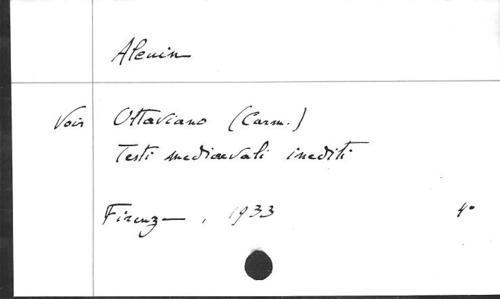 Alcuin
Voir Ottaviano (Carm.)
Testi mediaevali inediti
Firenze, 1933 4°